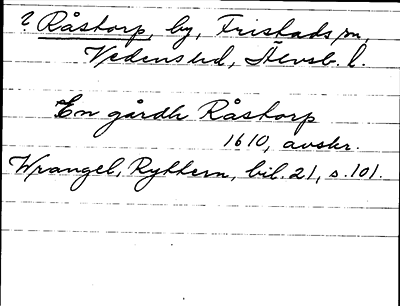 ? Råstorp, by, Fristads sn,
Vedens hd, Älvsb. l.
En gårdh Råstorp
1610, avskr.
Wrangel, Ryttern, bil. 21, s. 101.